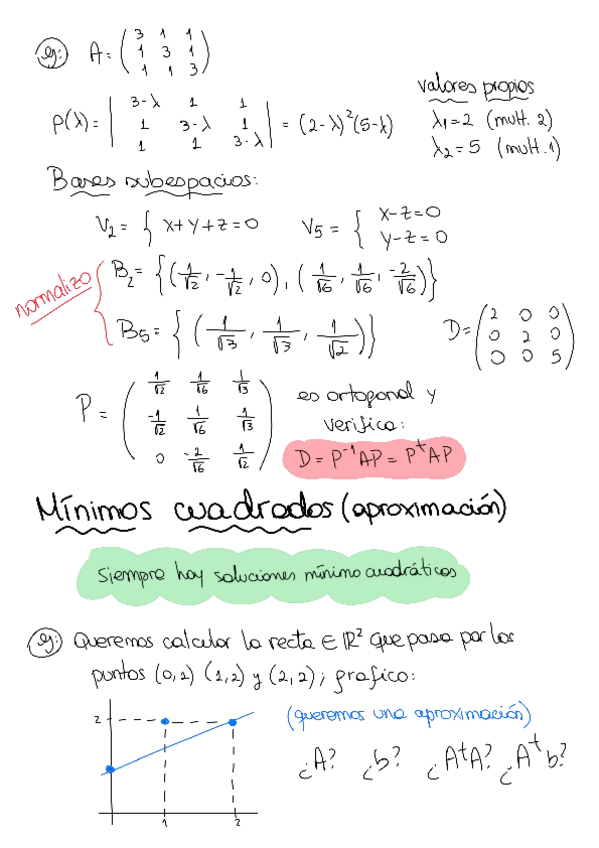 eg: A = ( 3 1 1
1 3 1
1 1 3 )
valores propios
P(λ) = | 3-λ 1 1
1 3-λ 1
1 1 3-λ | = (2-λ)²(5-λ)
λ1=2 (mult. 2)
λ2=5 (mult. 1)
Bases subespacios:
V2 = { x+y+z=0 V5 = { x-z=0
y-z=0
normalizo
B2 = {(1/√2, -1/√2, 0), (1/√6, 1/√6, -2/√6)}
B5 = {(1/√3, 1/√3, 1/√2)}
D = ( 2 0 0
0 2 0
0 0 5 )
P = ( 1/√2 1/√6 1/√3
-1/√2 1/√6 1/√3
0 -2/√6 1/√2 )
es ortogonal y
verifica:
D = P⁻¹AP = PᵗAP
Mínimos cuadrados (aproximación)
Siempre hay soluciones mínimo cuadráticos
eg: Queremos calcular la recta ∈ ℝ² que pasa por los
puntos (0,2) (1,2) y (2,2), grafico:
(queremos una aproximación)
¿A? ¿b? ¿AᵗA? ¿Aᵗb?
2
1 2